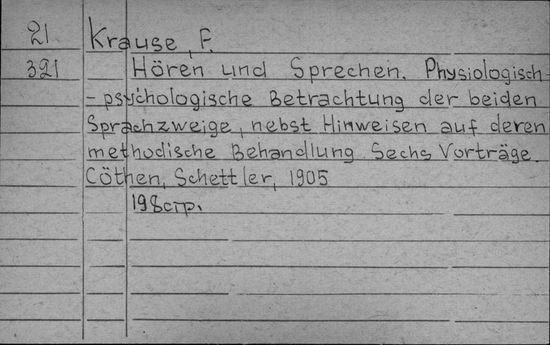 21 Krause, F.
321 Hören und Sprechen. Physiologisch-
-psychologische Betrachtung der beiden
Sprachzweige, nebst Hinweisen auf deren
methodische Behandlung. Sechs Vorträge.
Cöthen, Schettler, 1905
198 стр.